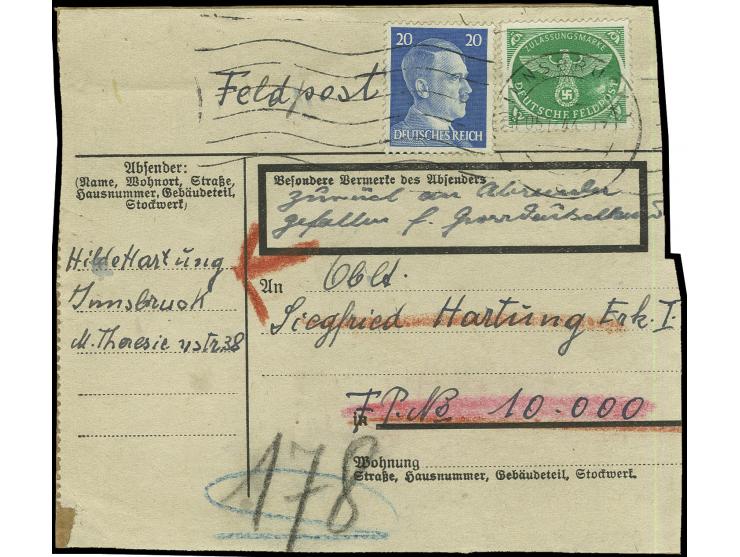 Feldpost
20 20
DEUTSCHES REICH
ZULASSUNGSMARKE
DEUTSCHE FELDPOST
Absender:
(Name, Wohnort, Straße,
Hausnummer, Gebäudeteil,
Stockwerk)
Hilde Hartung
Innsbruck
M. Theresienstr. 38
Besondere Vermerke des Absenders
zurück an Absender
gefallen f. Grossdeutschland
An
Oblt.
Siegfried Hartung Erk. I.
in F.P. No 10.000
Wohnung
Straße, Hausnummer, Gebäudeteil, Stockwerk.
178